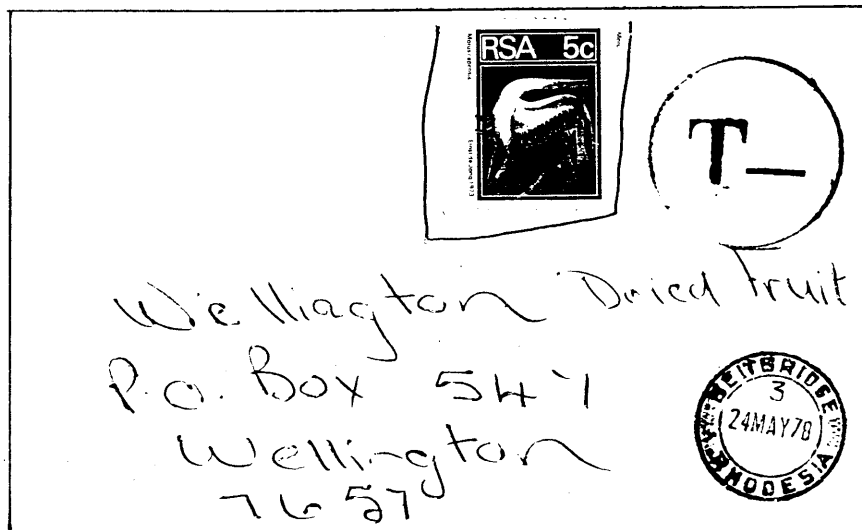 RSA 5c
T
Welliagton Dried Fruit
P.O. Box 547
Wellington
7657
BEITBRIDGE
3
24MAY78
RHODESIA